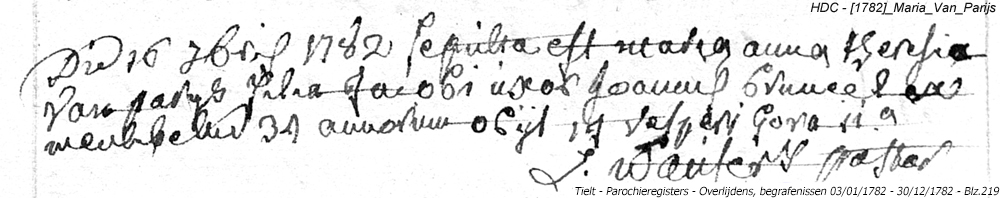 HDC - [1782]_Maria_Van_Parijs
Die 16 7bris 1782 sepulta est maria anna theresia
van parys filia Jacobi uxor Joannis
34 annorum obijt 14 vesperi hora 11a
L. Wauters pastor
Tielt - Parochieregisters - Overlijdens, begrafenissen 03/01/1782 - 30/12/1782 - Blz.219